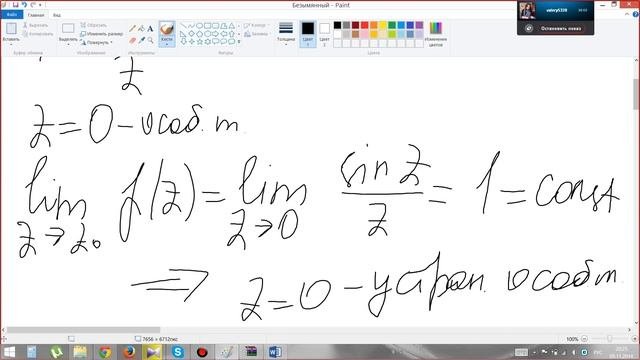 Безымянный - Paint
Файл Главная Вид
Вставить Вырезать Копировать Выделить Обрезать Изменить размер Повернуть Кисти Контур Заливка Толщина Цвет 1 Цвет 2 Изменение цветов
Буфер обмена Изображение Инструменты Фигуры Цвета
Остановить показ
z
z = 0 – особ. т.
lim f(z) = lim sin z / z = 1 = const
z → z₀ z → 0
⟹ z = 0 – устран. особ т.
7656 × 6712пкс 100%
РУС 20:25